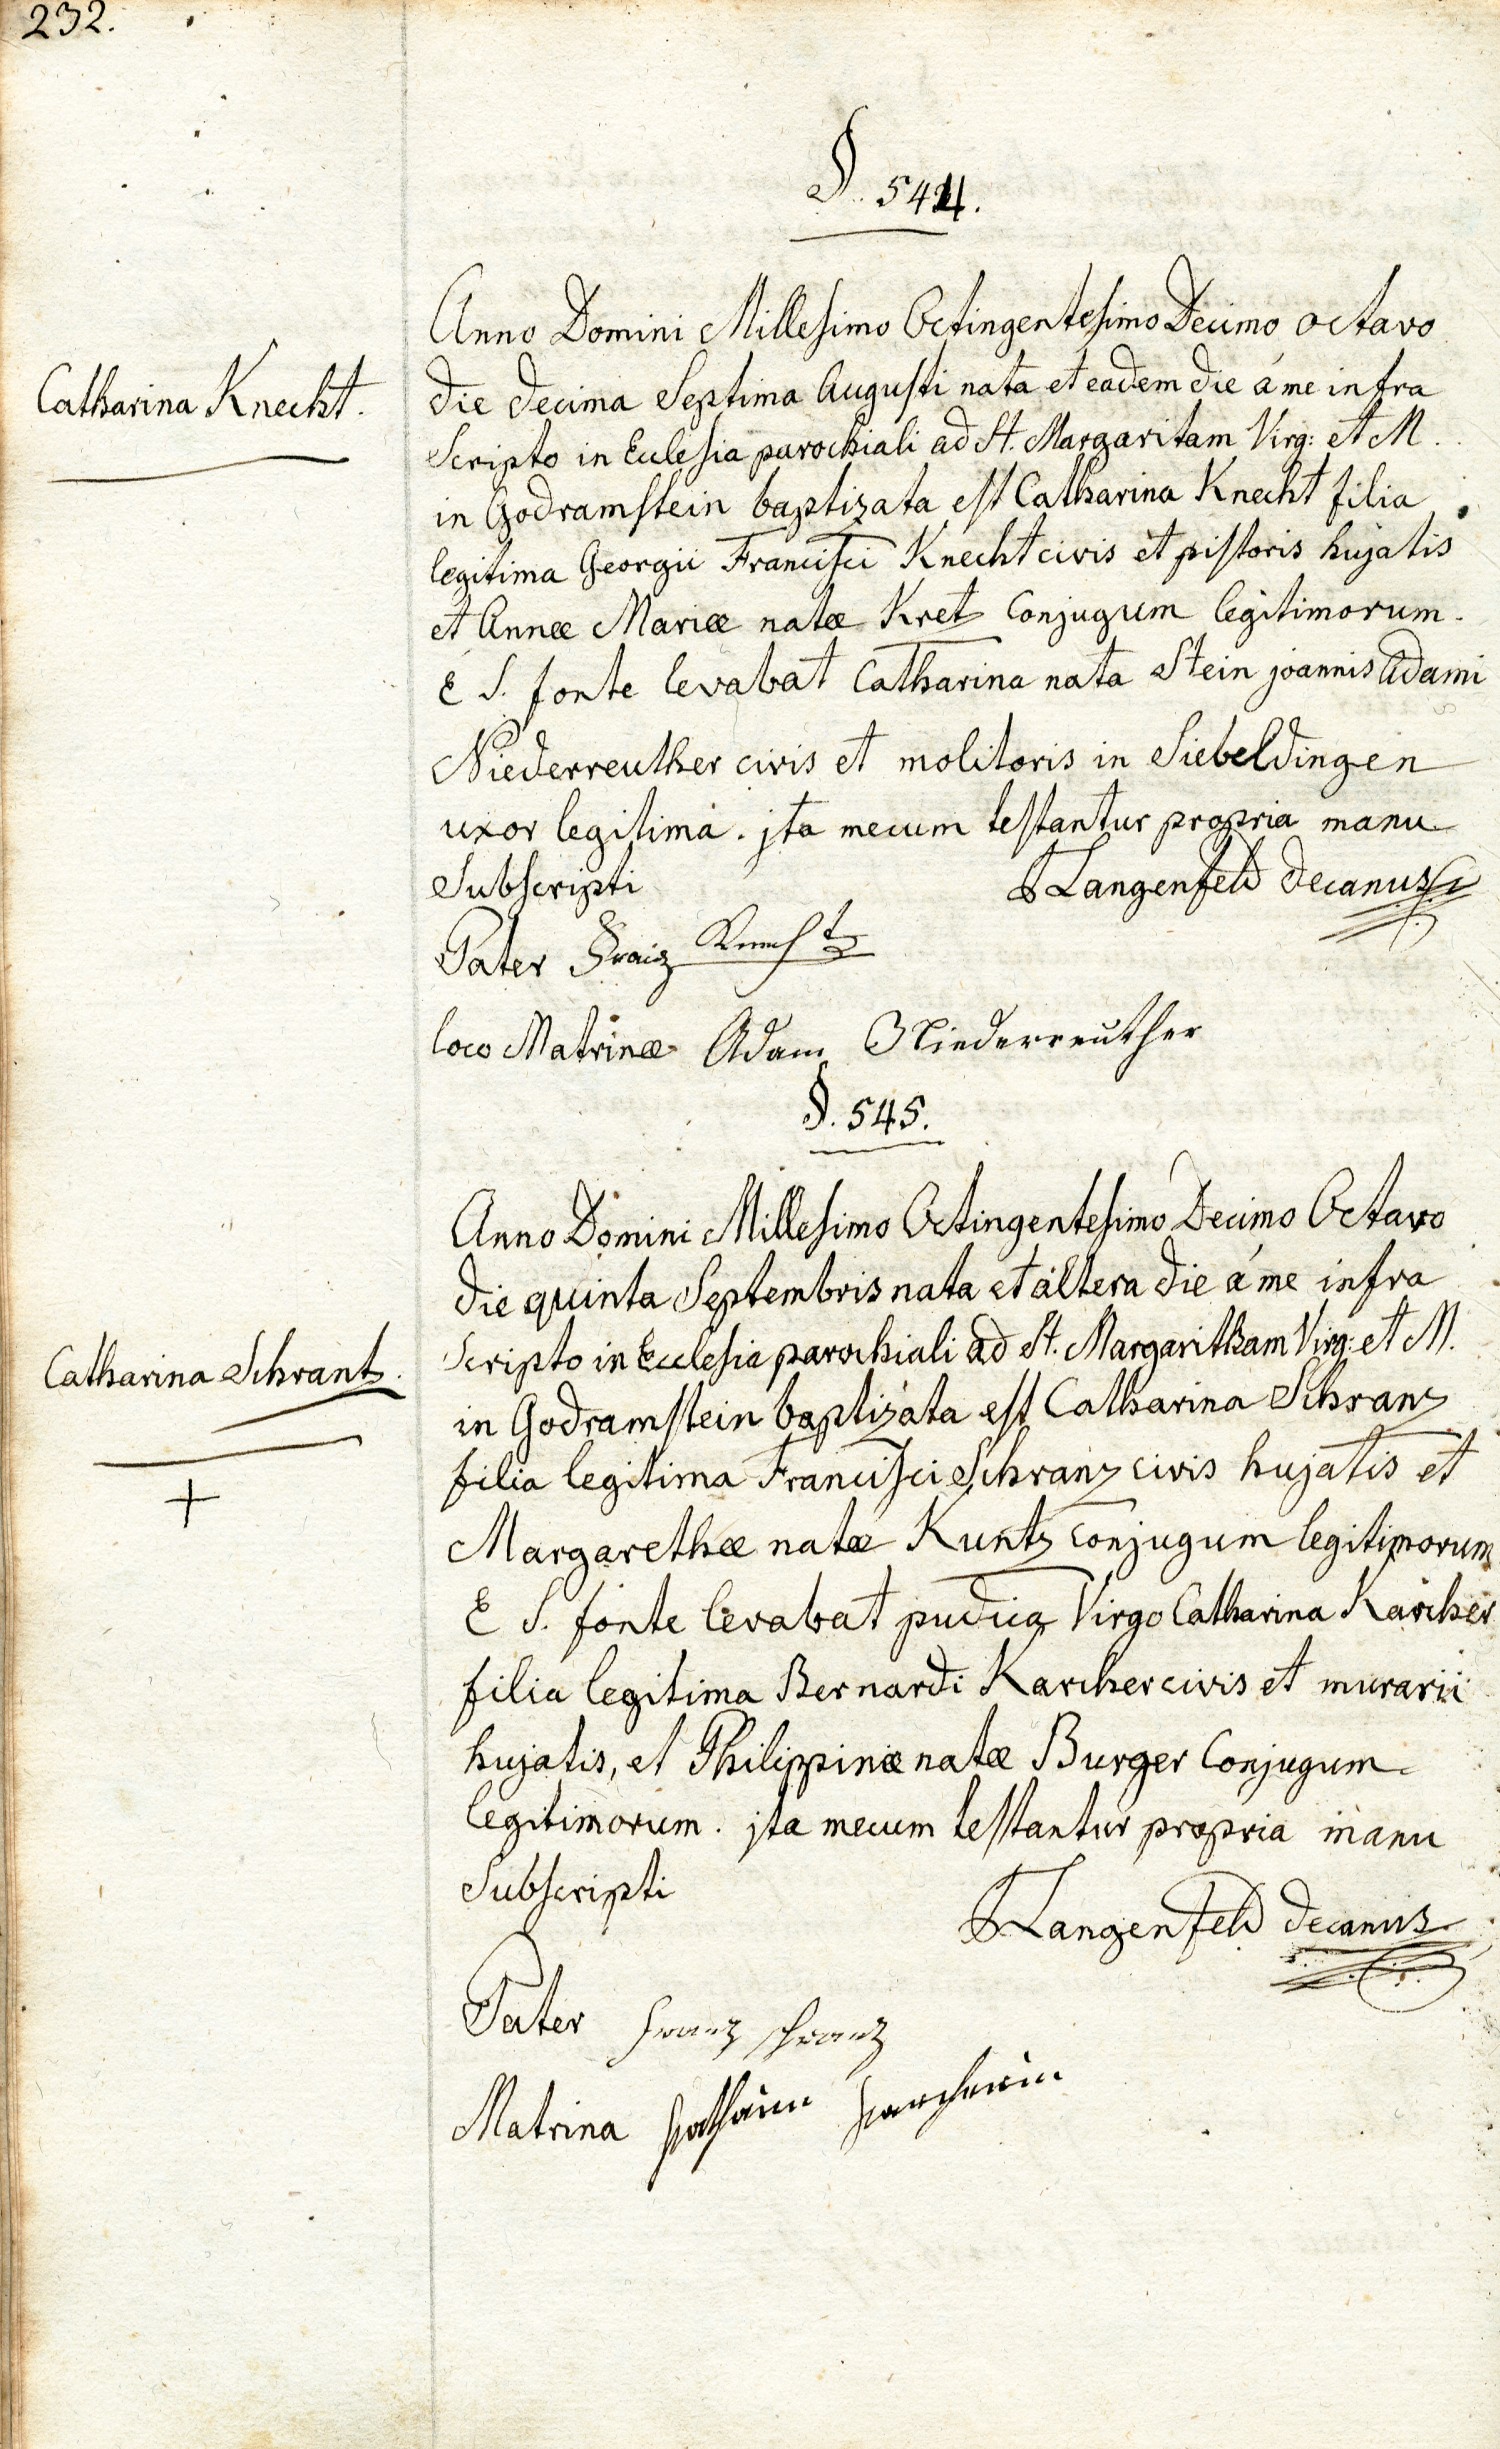 232.
§. 544.
Catharina Knecht.
Anno Domini Millesimo Octingentesimo Decimo octavo
die decima Septima Augusti nata et eadem die á me infra
Scripto in Ecclesia parochiali ad St. Margaritam Virg: et M.
in Godramstein baptizata est Catharina Knecht filia
legitima Georgii Francisci Knecht civis et pistoris hujatis
et Annæ Mariæ natæ Kretz Conjugum legitimorum.
E S. fonte levabat Catharina nata Stein joannis Adami
Niederreuther civis et molitoris in Siebeldingen
uxor legitima. jta mecum testantur propria manu
Subscripti
Langenfeld Decanus
Pater Franz Knecht
loco Matrinæ Adam Niederreuther
§. 545.
Catharina Schrantz.
+
Anno Domini Millesimo Octingentesimo Decimo Octavo
die quinta Septembris nata et altera die á me infra
Scripto in Ecclesia parochiali ad St. Margaritham Virg: et M.
in Godramstein baptizata est Catharina Schranz
filia legitima Francisci Schranz civis hujatis et
Margarethæ natæ Kuntz Conjugum legitimorum
E S. fonte levabat pudica Virgo Catharina Karcher
filia legitima Bernardi Karcher civis et murarii
hujatis, et Philippinæ natæ Burger Conjugum
legitimorum. jta mecum testantur propria manu
Subscripti
Langenfeld Decanus
Pater Franz Schranz
Matrina